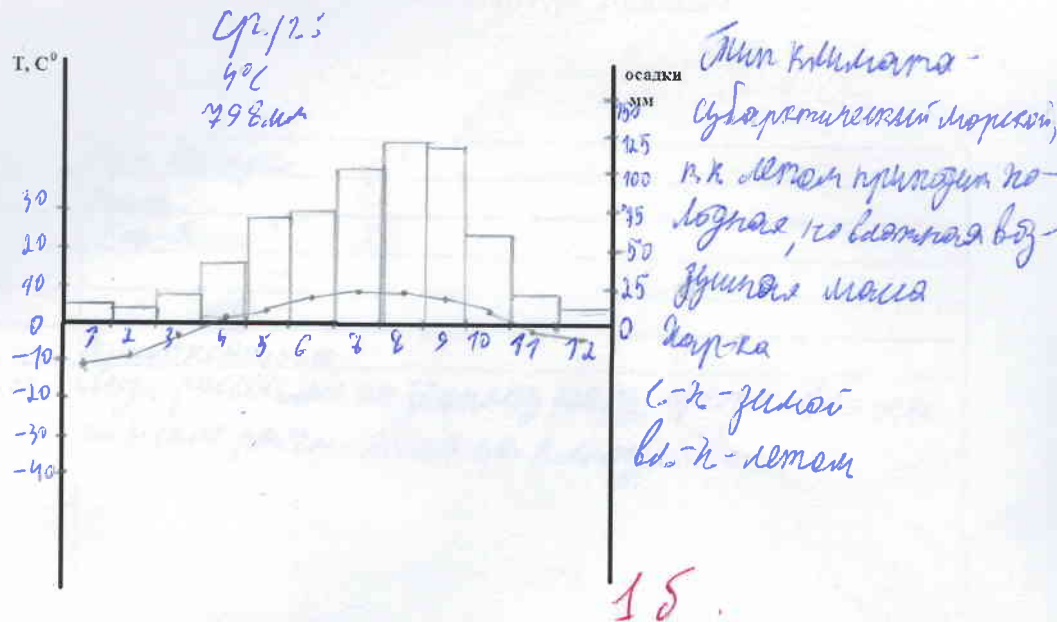 4°C
798мм
T, C⁰
30
20
10
0
-10
-20
-30
-40
1 2 3 4 5 6 7 8 9 10 11 12
осадки
мм
150
125
100
75
50
25
0
Тип климата -
субарктический морской,
т.к летом приходит хо-
лодная, но влажная воз-
душная масса
Хар-ка
с-х-зимой
вл.-х-летом
1 б.